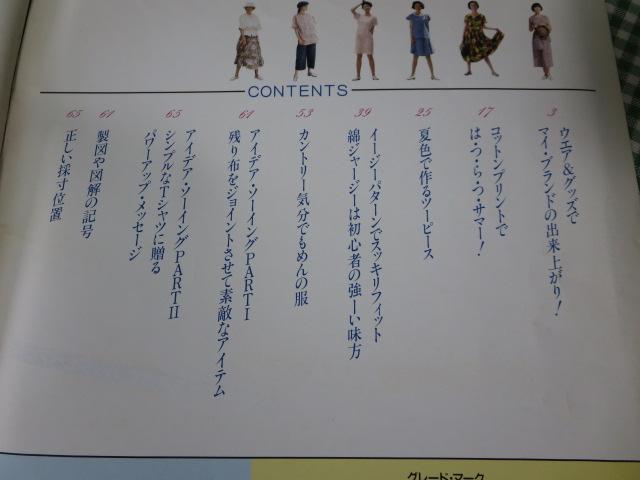 CONTENTS
3
ウエア&グッズで
マイ・ブランドの出来上がり!
17
コットンプリントで
は・つ・ら・つ・サマー!
25
夏色で作るツーピース
39
イージーパターンでスッキリフィット
綿ジャージーは初心者の強ーい味方
53
カントリー気分でもめんの服
61
アイデア・ソーイングPARTI
残り布をジョイントさせて素敵なアイテム
65
アイデア・ソーイングPARTII
シンプルなTシャツに贈る
パワーアップ・メッセージ
61
製図や図解の記号
65
正しい採寸位置
グレード・マーク